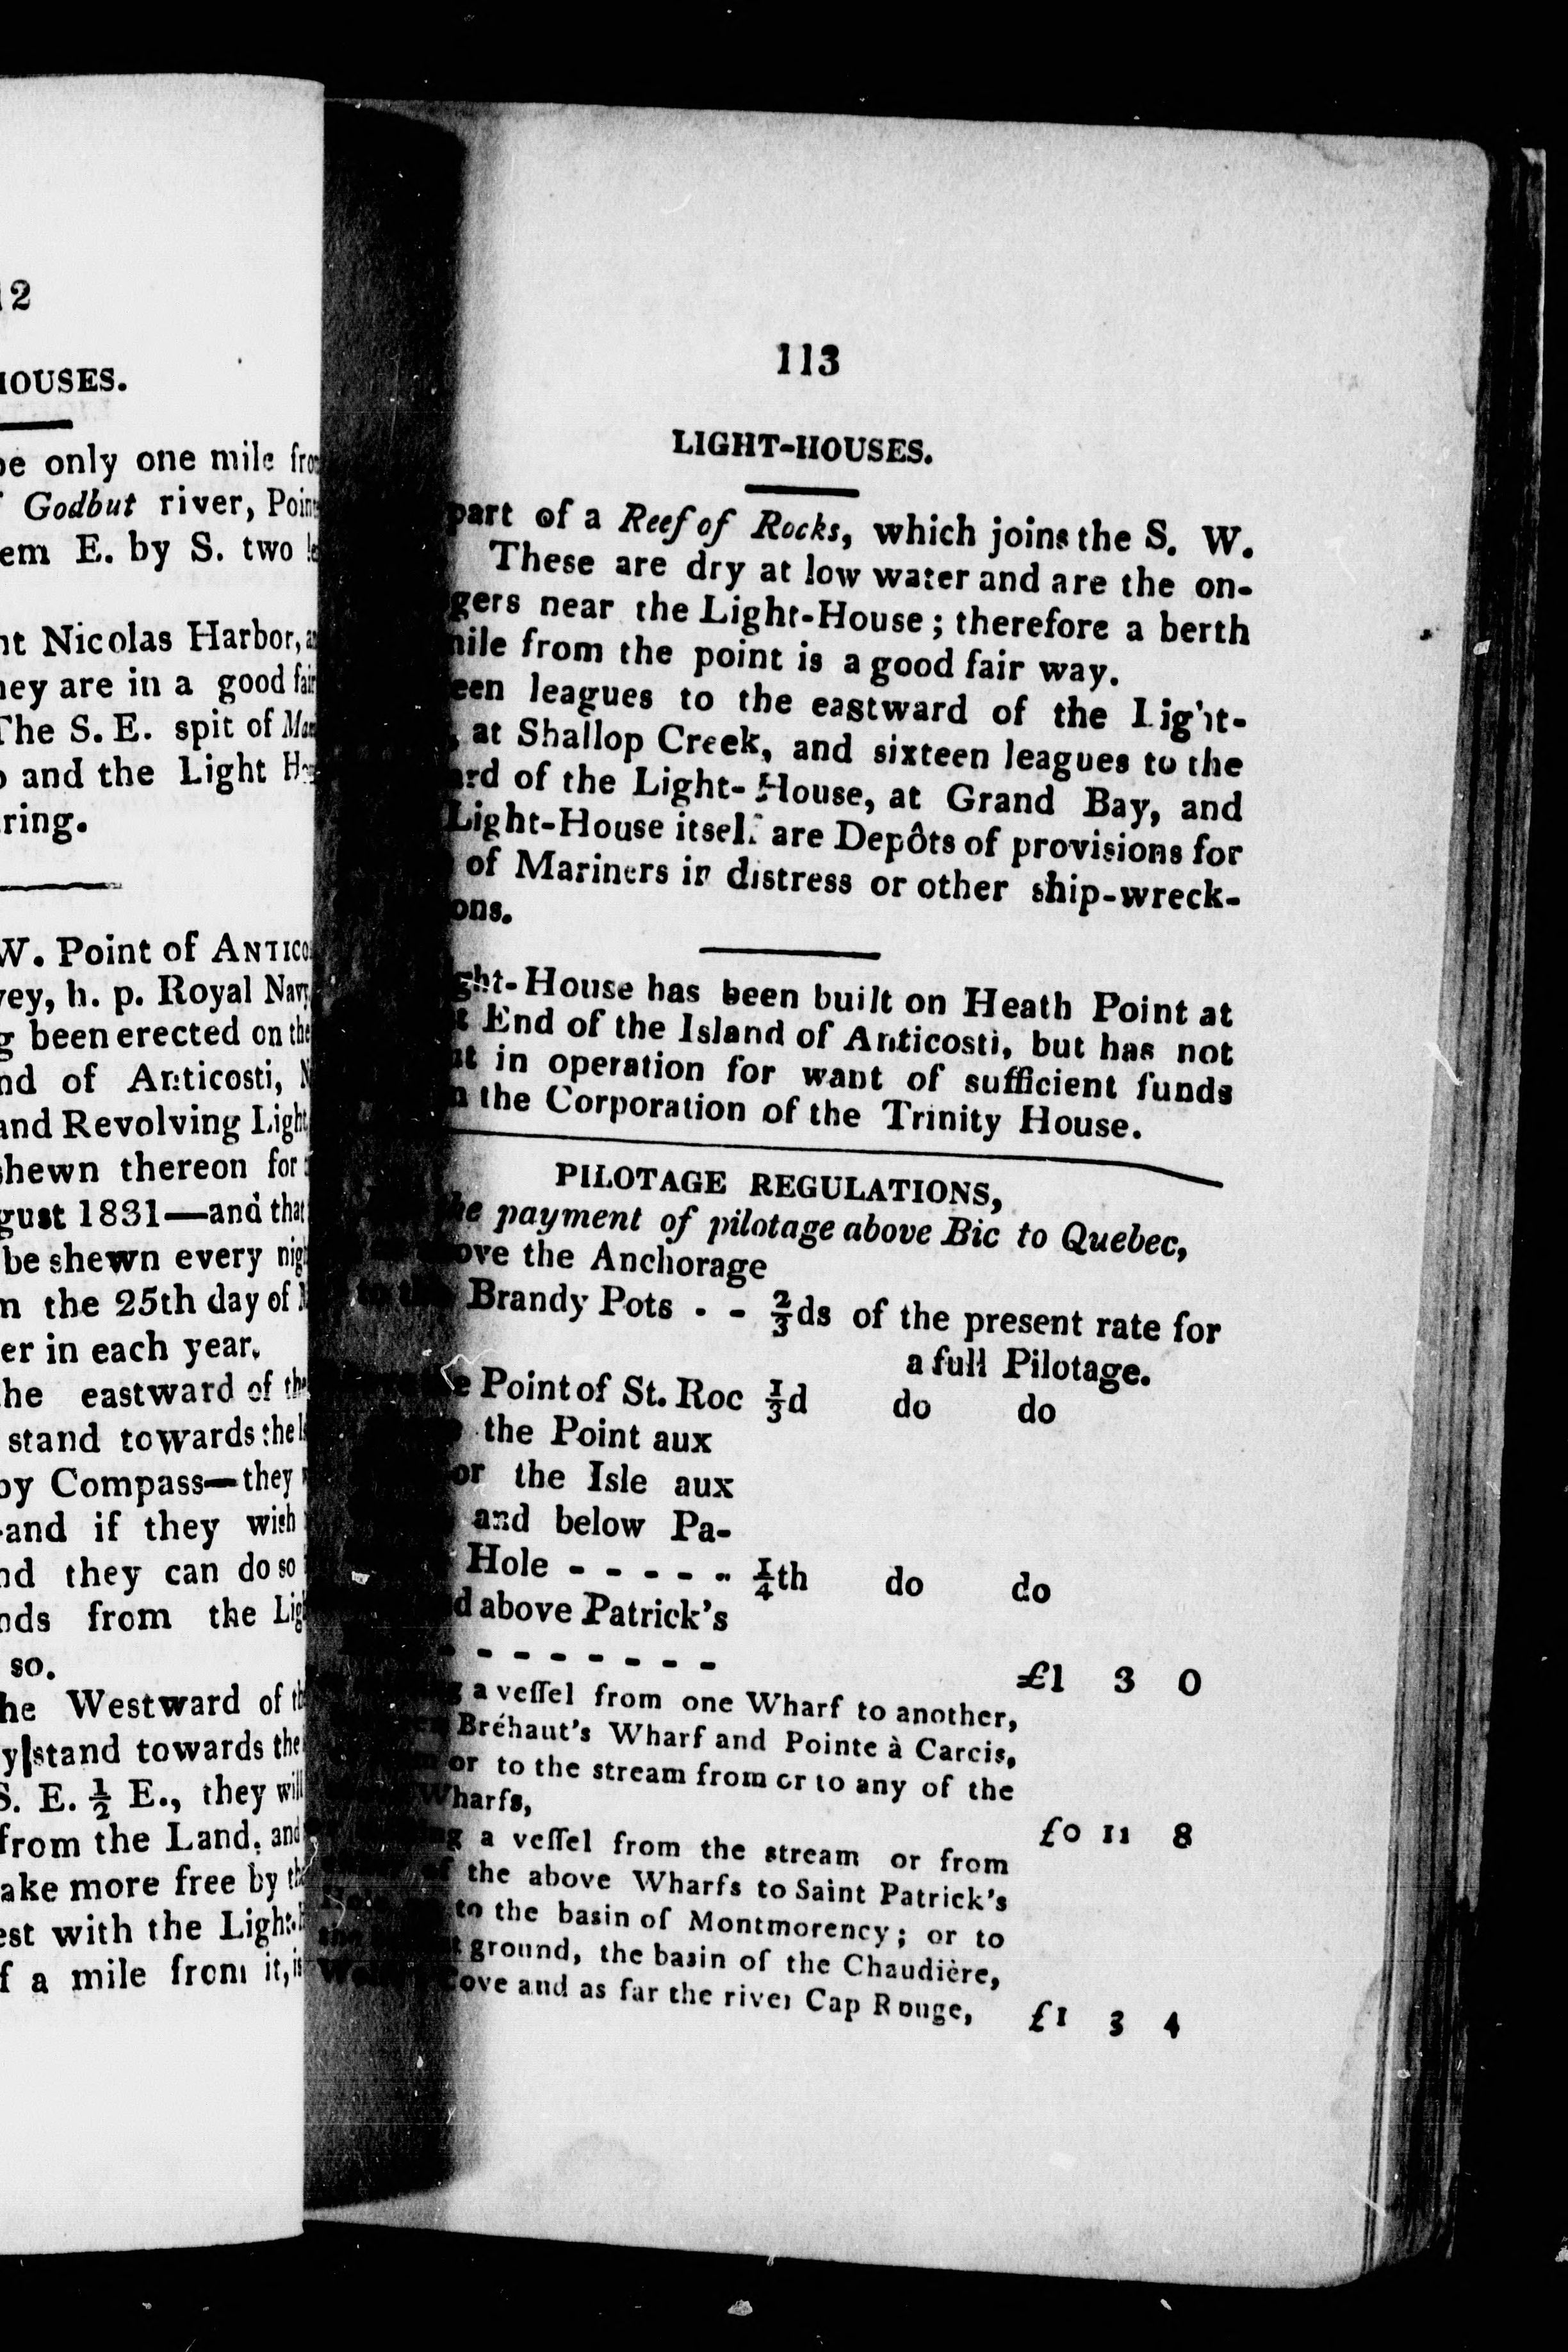 12
HOUSES.
be only one mile from
Godbut river, Point
em E. by S. two
nt Nicolas Harbor,
hey are in a good fair
The S. E. spit of
o and the Light
ring.
W. Point of ANTICO
vey, h. p. Royal Navy
g been erected on the
nd of Anticosti,
and Revolving Light
shewn thereon for
gust 1831—and that
be shewn every nigh
m the 25th day of
er in each year.
he eastward of the
stand towards the
by Compass—they
and if they wish
nd they can do so
nds from the Lig
so.
he Westward of th
y stand towards the
S. E. ½ E., they will
from the Land, and
ake more free by th
est with the Light-
f a mile from it,
113
LIGHT-HOUSES.
part of a Reef of Rocks, which joins the S. W.
These are dry at low water and are the on-
gers near the Light-House; therefore a berth
mile from the point is a good fair way.
een leagues to the eastward of the Light-
, at Shallop Creek, and sixteen leagues to the
ard of the Light-House, at Grand Bay, and
Light-House itself are Depôts of provisions for
of Mariners in distress or other ship-wreck-
ons.
ght-House has been built on Heath Point at
t End of the Island of Anticosti, but has not
ut in operation for want of sufficient funds
n the Corporation of the Trinity House.
PILOTAGE REGULATIONS,
he payment of pilotage above Bic to Quebec,
ove the Anchorage
to the Brandy Pots - - ⅔ds of the present rate for
a full Pilotage.
e Point of St. Roc ⅓d do do
the Point aux
or the Isle aux
and below Pa-
Hole - - - - - ¼th do do
d above Patrick's
- - - - - - - - £1 3 0
g a vessel from one Wharf to another,
Bréhaut's Wharf and Pointe à Carcis,
or to the stream from or to any of the
Wharfs, £0 11 8
g a vessel from the stream or from
of the above Wharfs to Saint Patrick's
to the basin of Montmorency; or to
t ground, the basin of the Chaudière,
Cove and as far the river Cap Rouge, £1 3 4